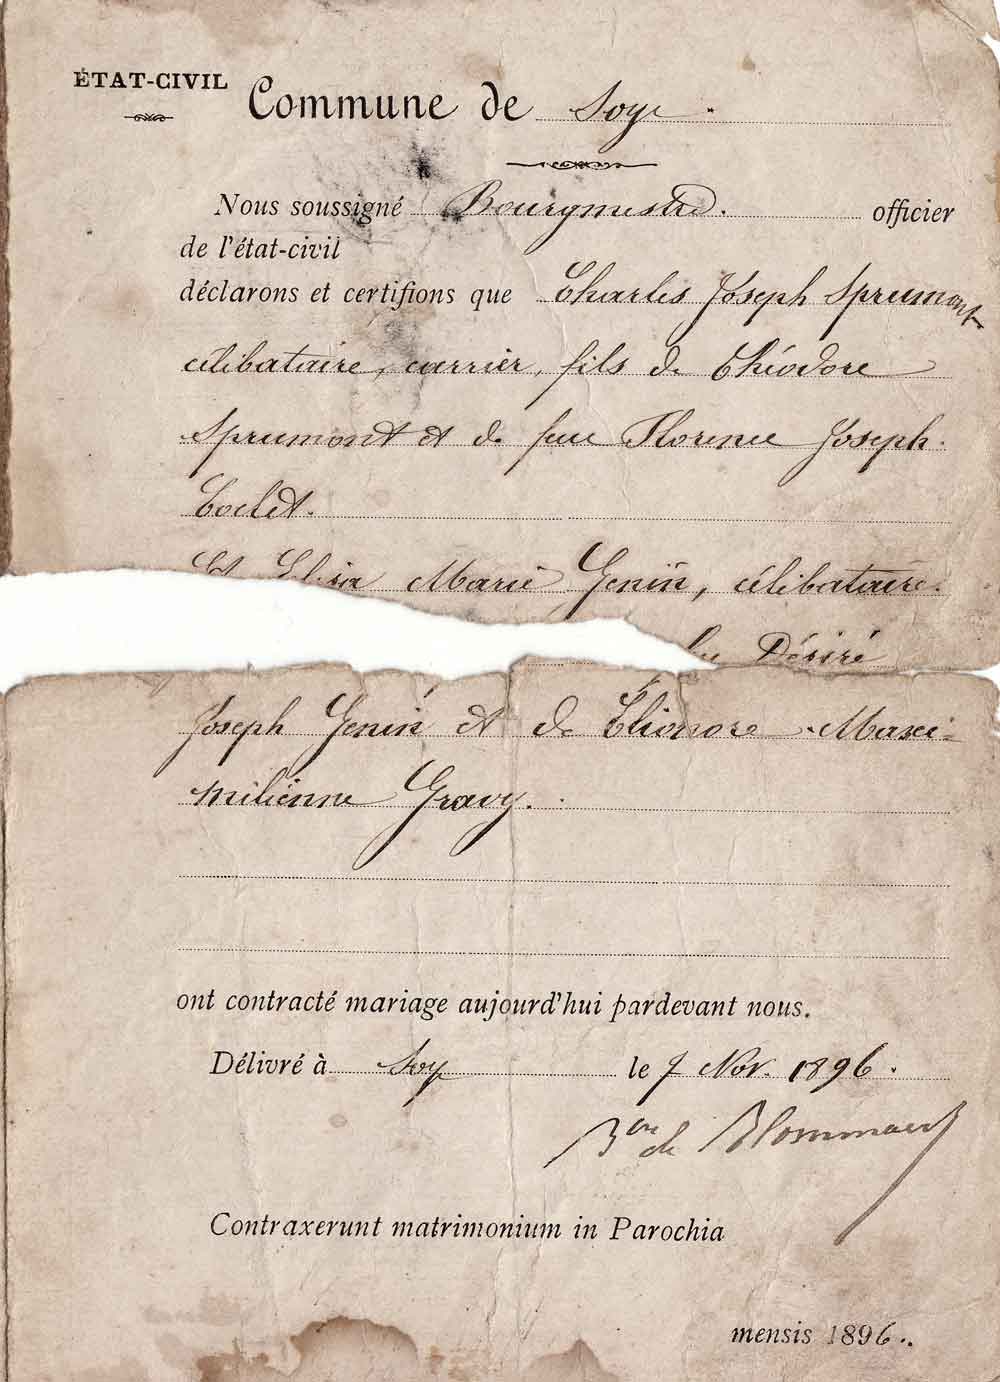 ÉTAT-CIVIL
Commune de Soye.
Nous soussigné Bourgmestre. officier
de l'état-civil
déclarons et certifions que Charles Joseph Sprumont
célibataire, carrier, fils de Théodore
Sprumont et de feue Florence Joseph
Coclet.
Et Elisa Marie Genin, célibataire.
Désiré
Joseph Genin et de Eléonore Maxi-
milienne Gravy.
ont contracté mariage aujourd'hui pardevant nous.
Délivré à Soye le 7 Nov. 1896.
Bon de Blommaert
Contraxerunt matrimonium in Parochia
mensis 1896.